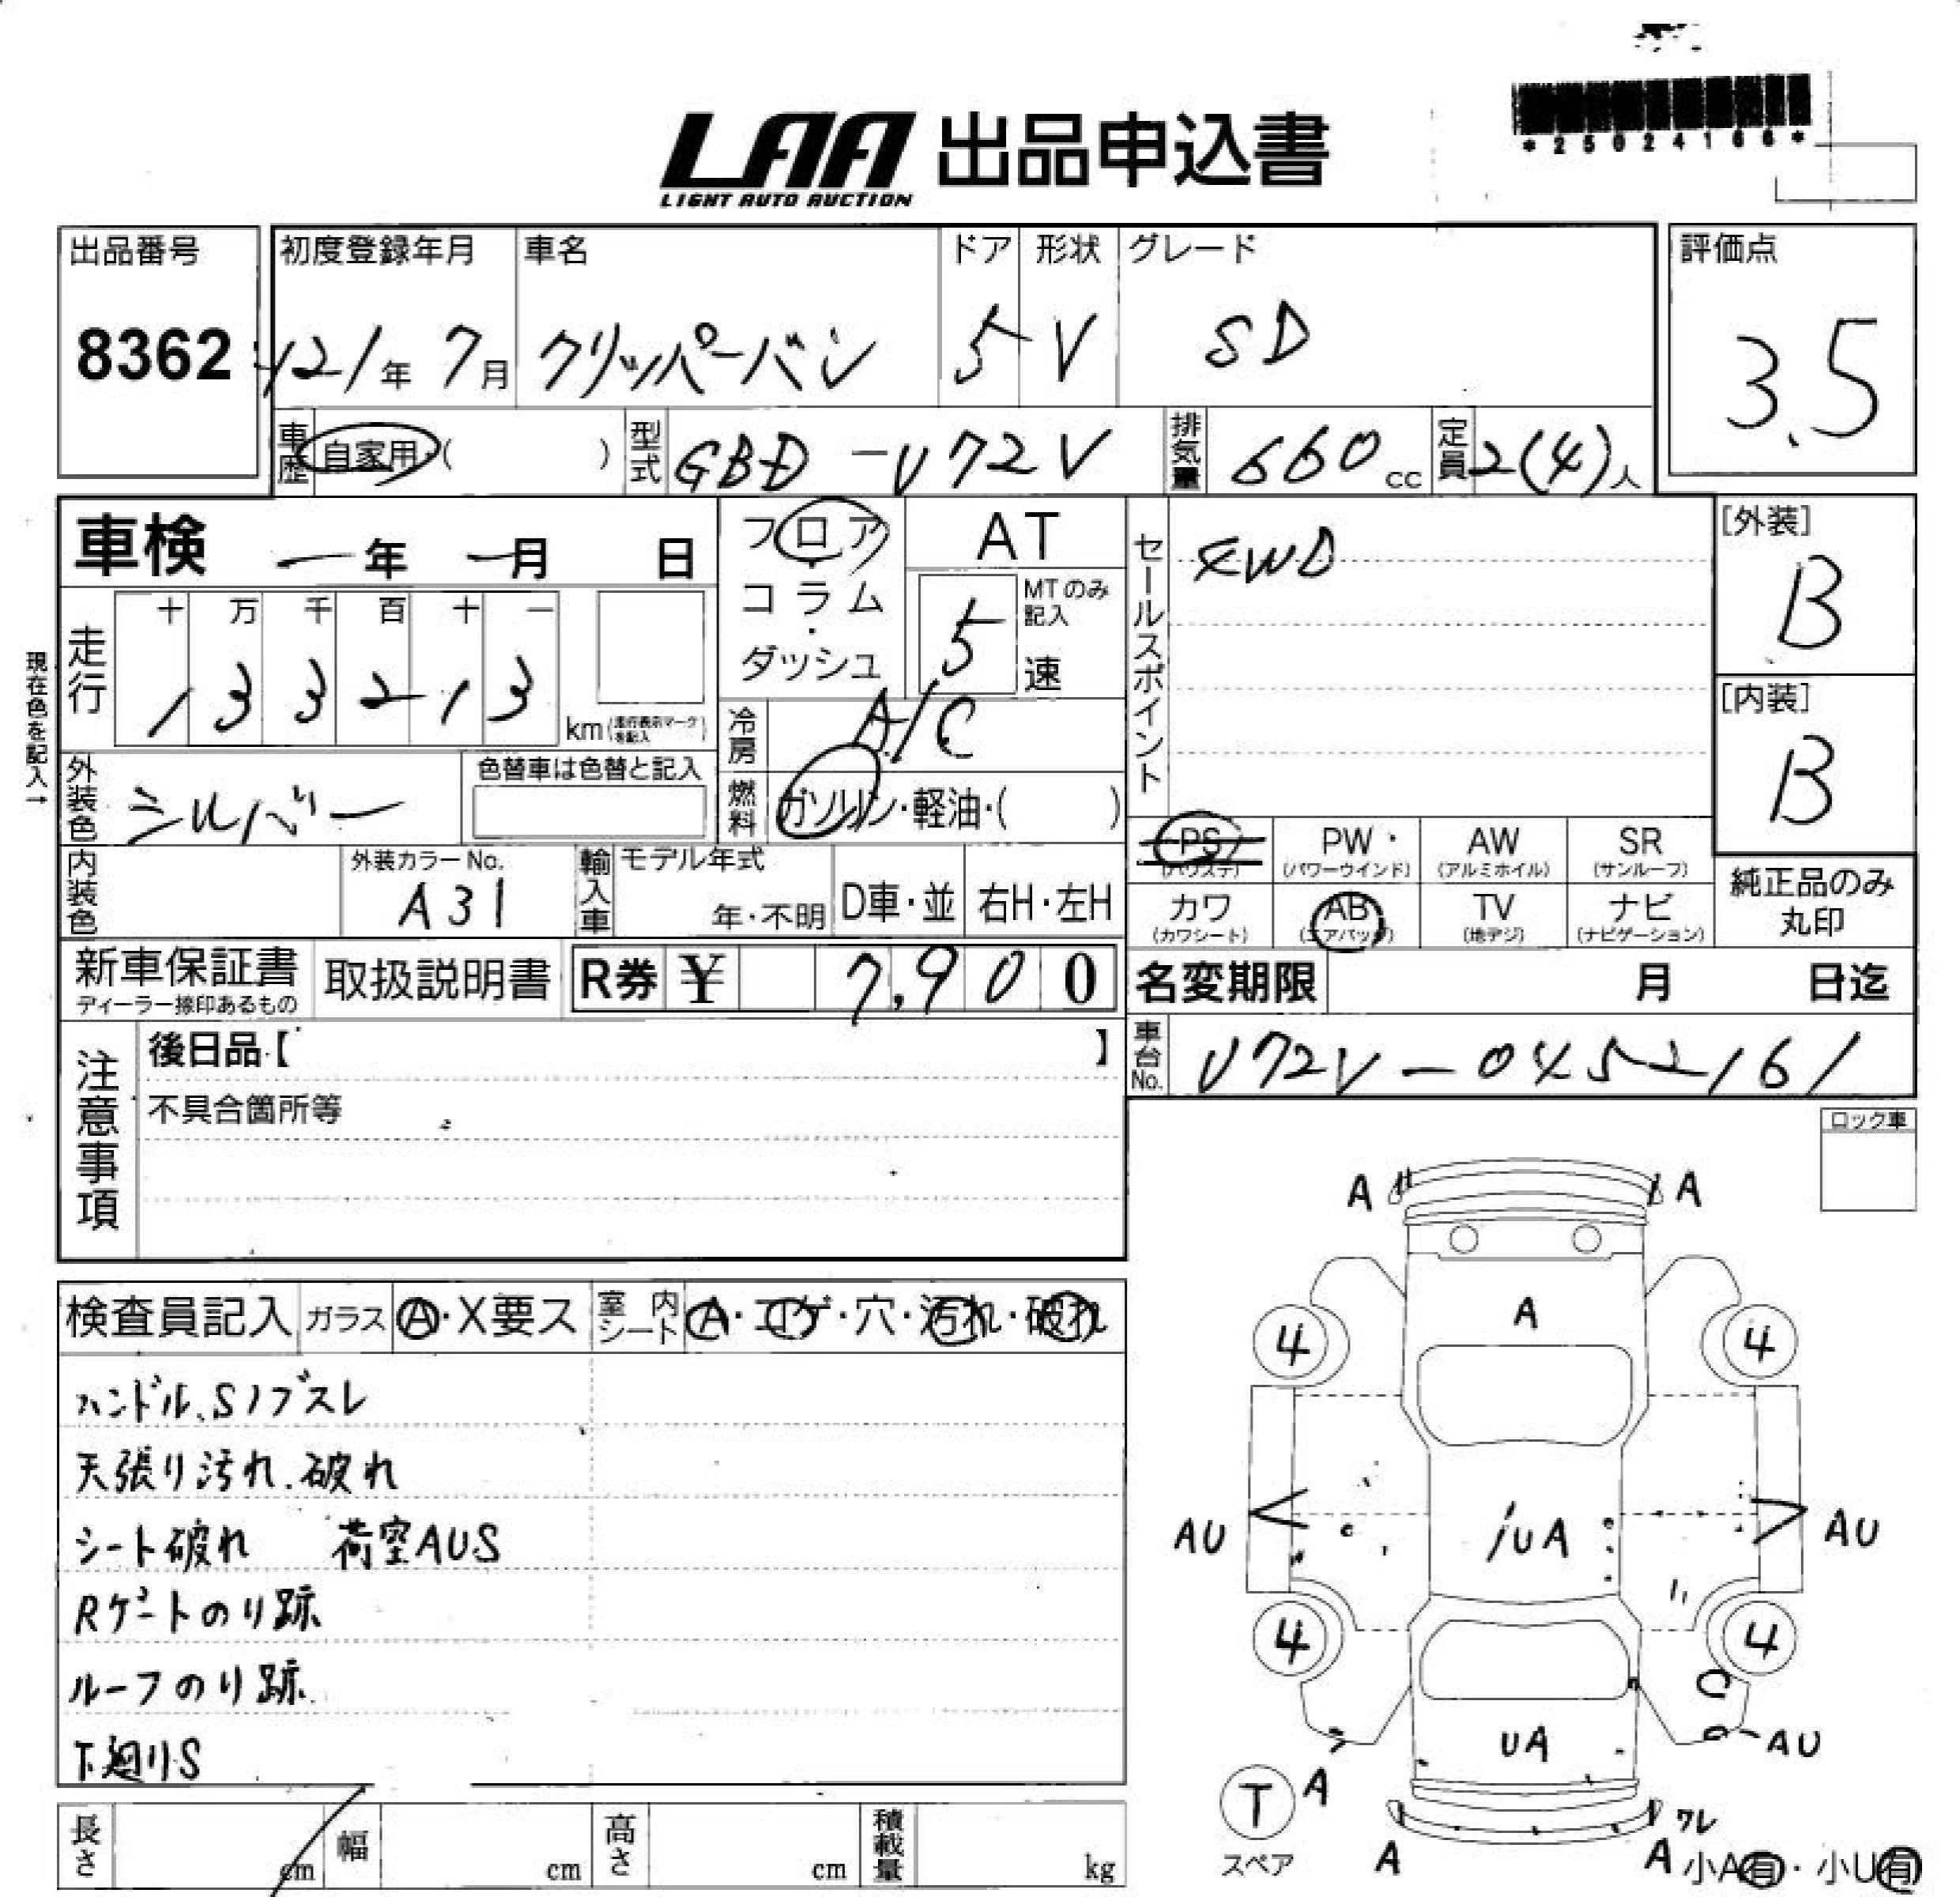 *25024166*
LAA 出品申込書
LIGHT AUTO AUCTION
出品番号
8362
初度登録年月
H21年 7月
車名
クリッパーバン
ドア
5
形状
V
グレード
SD
評価点
3.5
車歴
自家用・( )
型式
GBD-U72V
排気量
660cc
定員
2(4)人
車検 ー年 ー月 日
フロア
コラム
・
ダッシュ
AT
MTのみ記入
5
速
セールスポイント
4WD
[外装]
B
[内装]
B
現在色を記入→
走行
十 万 千 百 十 一
1 3 3 2 1 3
km(走行表示マークを記入)
冷房
A/C
外装色
シルバー
色替車は色替と記入
燃料
ガソリン・軽油・( )
PS
(パワステ)
PW
(パワーウインド)
AW
(アルミホイル)
SR
(サンルーフ)
カワ
(カワシート)
AB
(エアバッグ)
TV
(地デジ)
ナビ
(ナビゲーション)
純正品のみ
丸印
内装色
外装カラーNo.
A31
輸入車
モデル年式
年・不明
D車・並
右H・左H
新車保証書
ディーラー捺印あるもの
取扱説明書
R券 ¥ 7,900
名変期限 月 日迄
車台No.
U72V-0452161
注意事項
後日品【 】
不具合箇所等
ロック車
検査員記入
ガラス
A・X要ス
室内シート
A・コゲ・穴・汚れ・破れ
ハンドル、Sノブスレ
天張り汚れ.破れ
シート破れ 荷室AUS
Rゲートのり跡
ルーフのり跡
下廻りS
A A
A
4 4
AU
小UA
AU
4 4
UA
AU
T
A
スペア
A
ワレ
A
小A有・小U有
長さ cm
幅 cm
高さ cm
積載量 kg